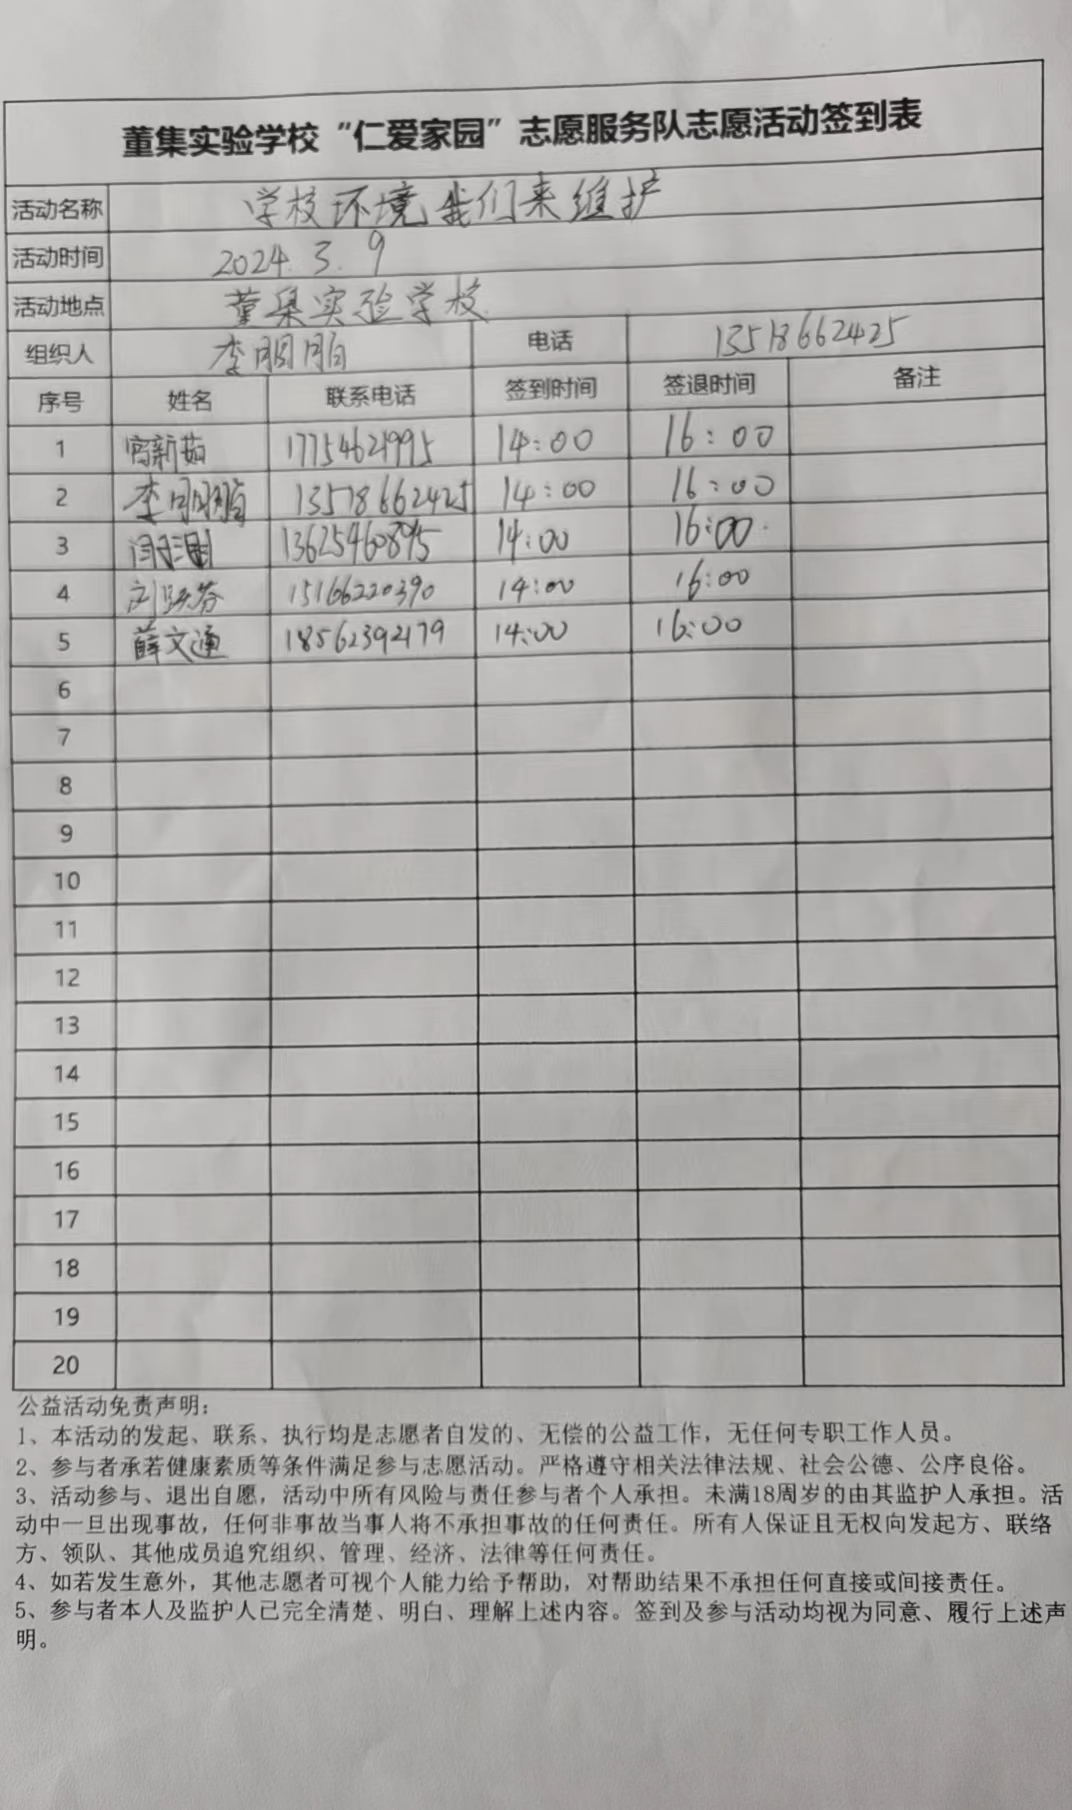 董集实验学校“仁爱家园”志愿服务队志愿活动签到表
活动名称 学校环境,我们来维护
活动时间 2024.3.9
活动地点 董集实验学校
组织人 李胭脂 电话 13518662425
序号 姓名 联系电话 签到时间 签退时间 备注
1 新茹 17754621995 14:00 16:00
2 李胭脂 13518662425 14:00 16:00
3 13625460895 14:00 16:00
4 刘芬 15166220390 14:00 16:00
5 薛文通 18562392179 14:00 16:00
6
7
8
9
10
11
12
13
14
15
16
17
18
19
20
公益活动免责声明:
1、本活动的发起、联系、执行均是志愿者自发的、无偿的公益工作，无任何专职工作人员。
2、参与者承若健康素质等条件满足参与志愿活动。严格遵守相关法律法规、社会公德、公序良俗。
3、活动参与、退出自愿，活动中所有风险与责任参与者个人承担。未满18周岁的由其监护人承担。活
动中一旦出现事故，任何非事故当事人将不承担事故的任何责任。所有人保证且无权向发起方、联络
方、领队、其他成员追究组织、管理、经济、法律等任何责任。
4、如若发生意外，其他志愿者可视个人能力给予帮助，对帮助结果不承担任何直接或间接责任。
5、参与者本人及监护人已完全清楚、明白、理解上述内容。签到及参与活动均视为同意、履行上述声
明。